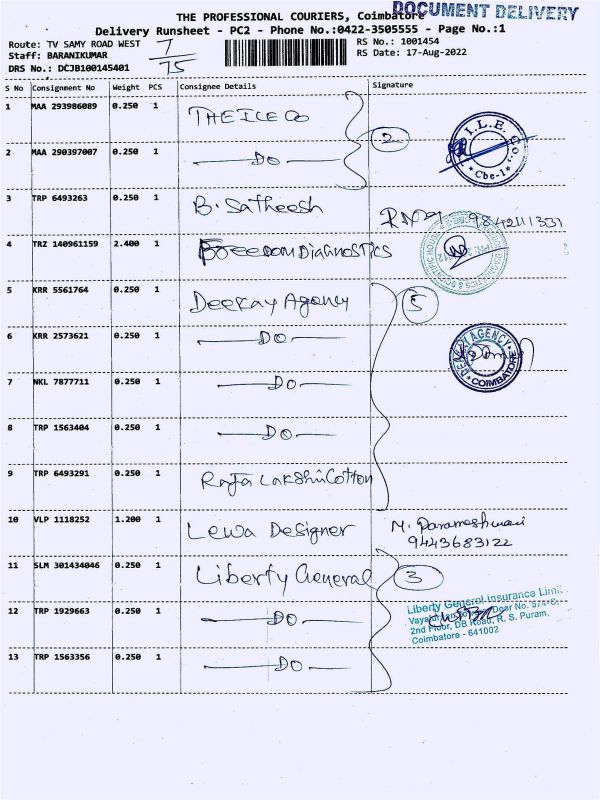 THE PROFESSIONAL COURIERS, Coimbatore
DOCUMENT DELIVERY
Delivery Runsheet - PC2 - Phone No.:0422-3505555 - Page No.:1
Route: TV SAMY ROAD WEST
Staff: BARANIKUMAR
DRS No.: DCJB100145401
7
75
RS No.: 1001454
RS Date: 17-Aug-2022
S No Consignment No Weight PCS Consignee Details Signature
1 MAA 293986089 0.250 1 THE ILE Co
2
I.L.E. Co. * Cbe-1 *
2 MAA 290397007 0.250 1 DO
3 TRP 6493263 0.250 1 B. Satheesh
9842111331
4 TRZ 140961159 2.400 1 Freedom Diagnostics
5 KRR 5561764 0.250 1 Deekay Agency
5
6 KRR 2573621 0.250 1 DO
AGENCY * COIMBATORE
7 NKL 7877711 0.250 1 DO
8 TRP 1563404 0.250 1 DO
9 TRP 6493291 0.250 1 Raja Lakshmi Cotton
10 VLP 1118252 1.200 1 Lewa Designer
M. Parameshwari
9443683122
11 SLM 301434046 0.250 1 Liberty General
3
Liberty General Insurance Limi
Door No. 574-C,
2nd Floor, DB Road, R. S. Puram,
Coimbatore - 641002
12 TRP 1929663 0.250 1 DO
13 TRP 1563356 0.250 1 DO